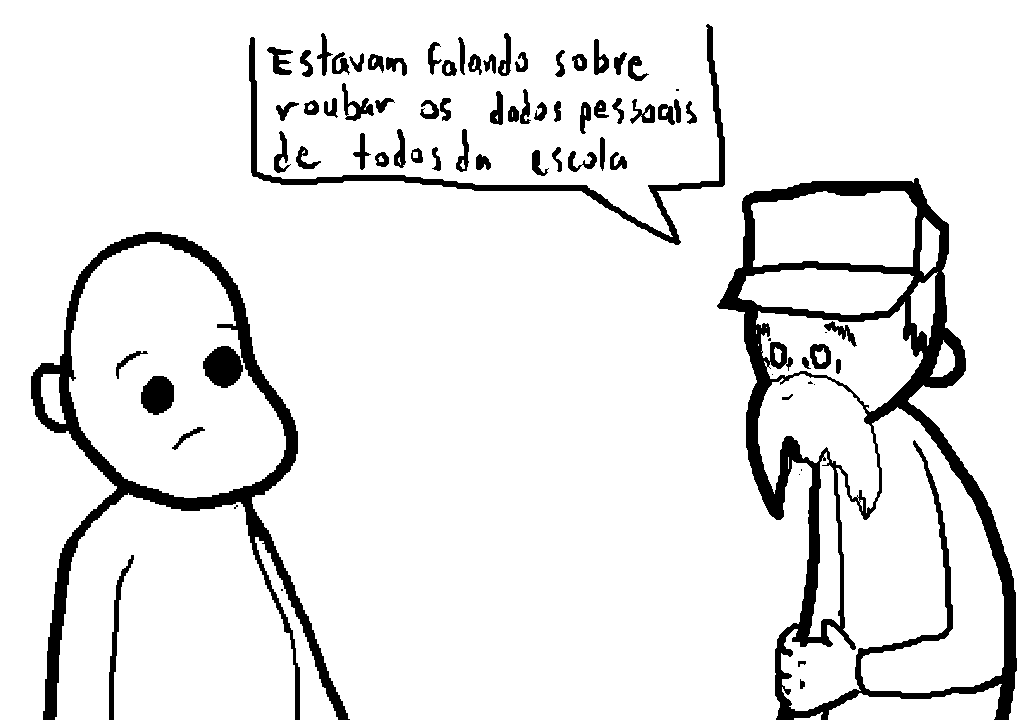 Estavam falando sobre
roubar os dados pessoais
de todos da escola